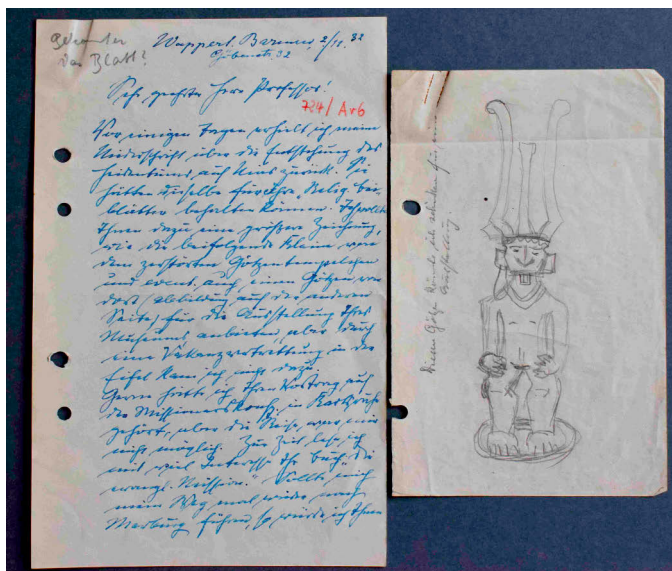 Gekommen
das Blatt?
Wuppert. Barmen, 2/11. 32
Sehr geehrter Herr Professor!
784/Arb
Vor einigen Tagen erhielt ich meine
Niederschrift über die Entstehung des
Heidentums auf Nias zurück. Sie
hätten dieselbe für Ihre "Relig. bei-
blätter behalten können. Ich wollte
Ihnen dazu eine größere Zeichnung,
wie die beifolgende kleine, von
dem zerstörten Götzentempelchen
und event. auch einen Götzen, wie
dort (Abbildung auf der anderen
Seite) für die Ausstellung Ihres
Museums anbieten, aber durch
eine Vakanzvertretung in der
Eifel kam ich nicht dazu.
Gern hätte ich Ihren Vortrag auf
der Missionarskonf. in Karlsruhe
gehört, aber die Reise war mir
nicht möglich. Zur Zeit lese ich
mit viel Interesse Ihr Buch "die
evangl. Mission." Sollte mich
mein Weg mal wieder nach
Marburg führen, so würde ich Ihnen
Diesen Götze könnte ich schicken für eine
Ausstellung.